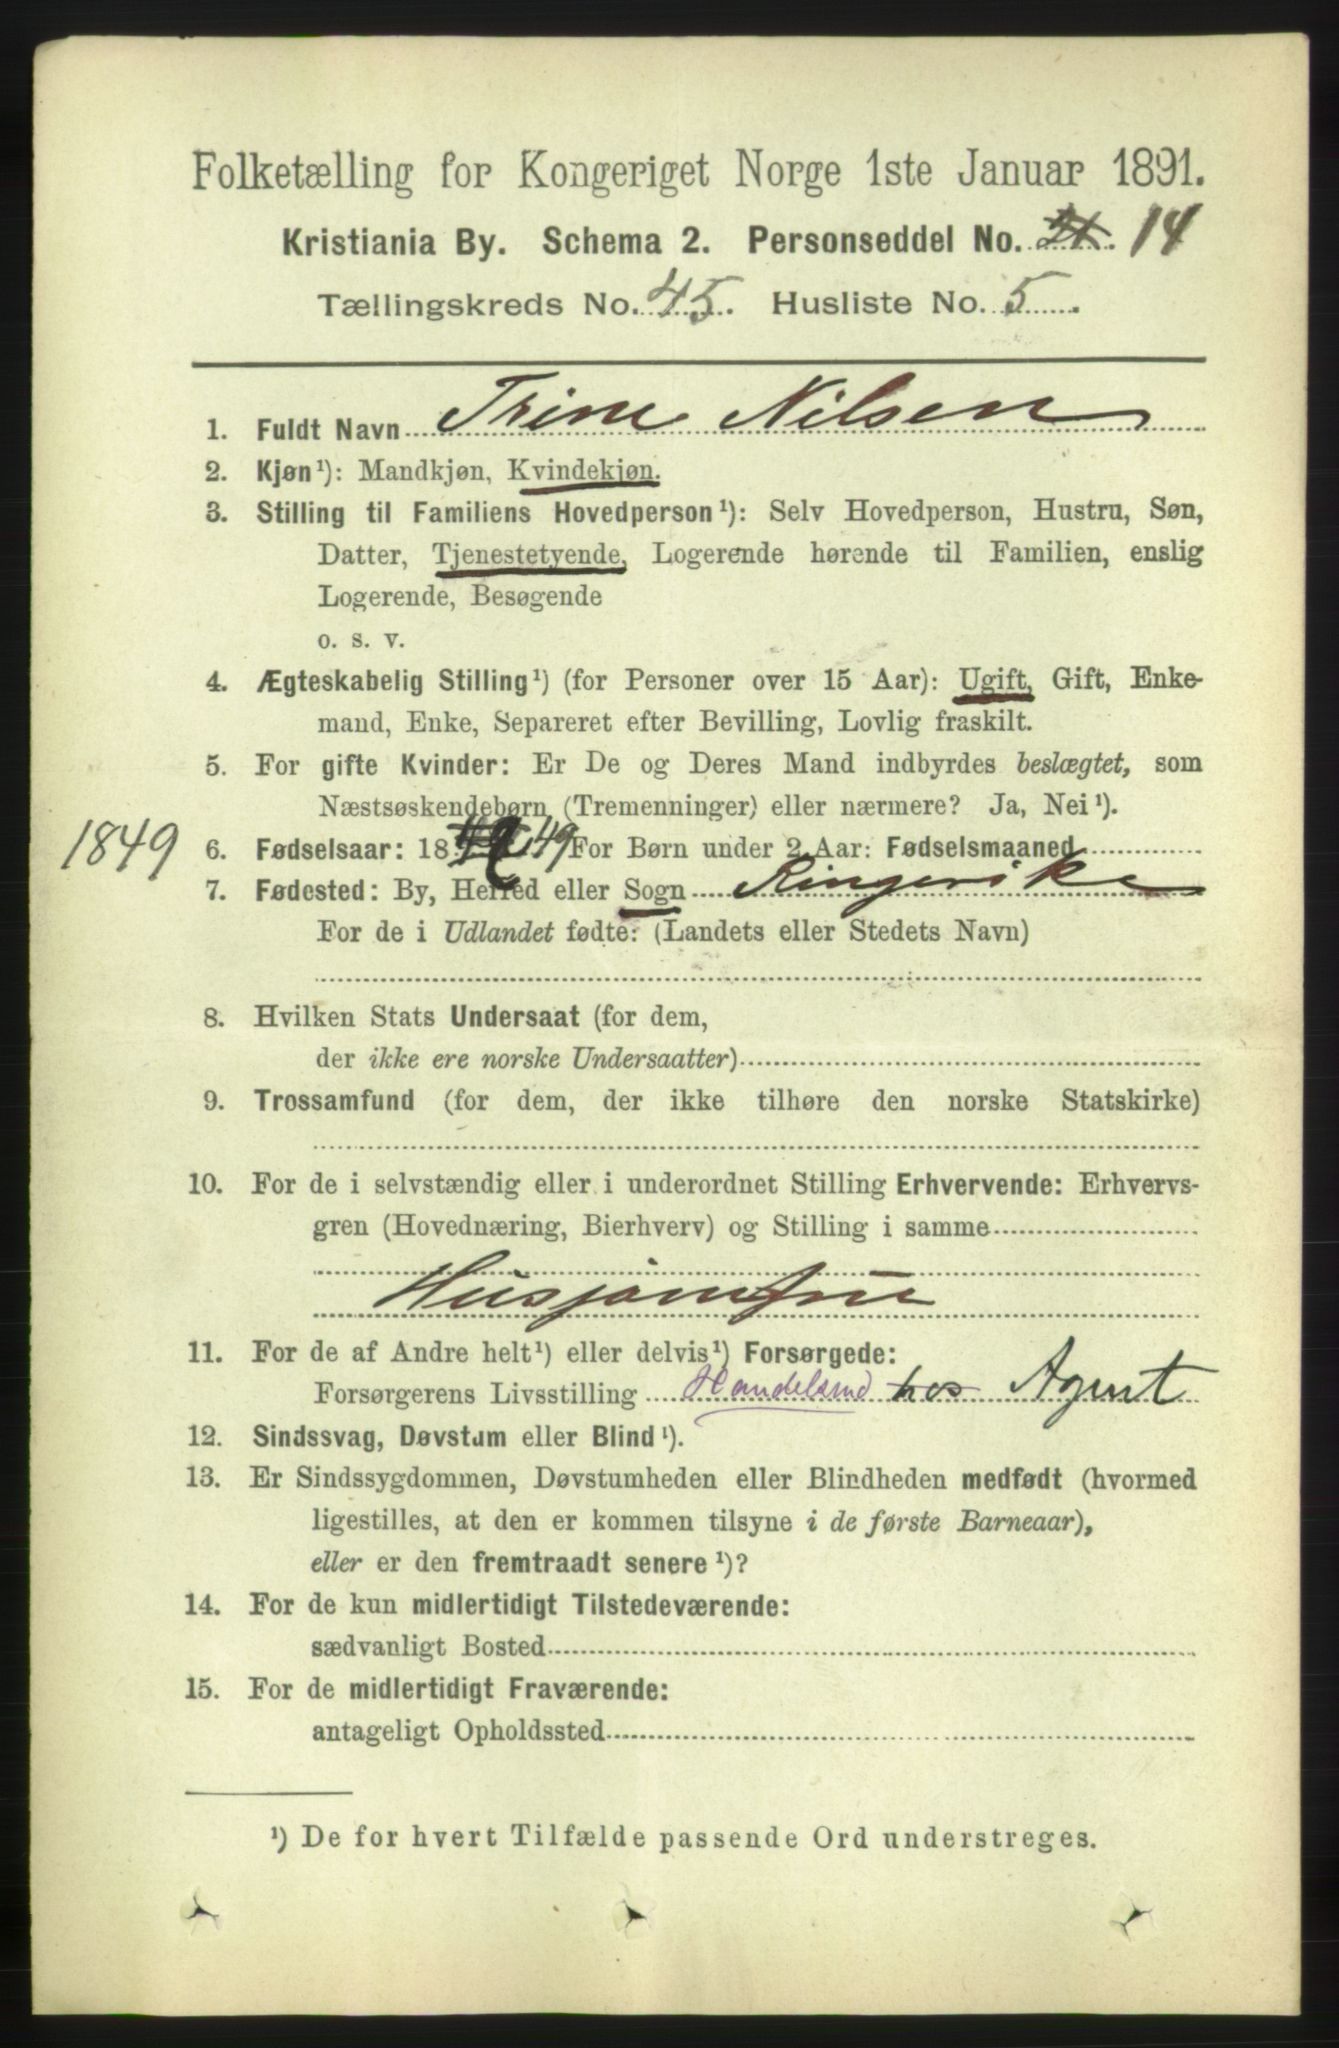 Folketælling for Kongeriget Norge 1ste Januar 1891.
Kristiania By. Schema 2. Personseddel No. 14
Tællingskreds No. 45. Husliste No. 5.
1. Fuldt Navn Trine Nilsen
2. Kjøn¹): Mandkjøn, Kvindekjøn.
3. Stilling til Familiens Hovedperson¹): Selv Hovedperson, Hustru, Søn,
Datter, Tjenestetyende, Logerende hørende til Familien, enslig
Logerende, Besøgende
o. s. v.
4. Ægteskabelig Stilling¹) (for Personer over 15 Aar): Ugift, Gift, Enke-
mand, Enke, Separeret efter Bevilling, Lovlig fraskilt.
5. For gifte Kvinder: Er De og Deres Mand indbyrdes beslægtet, som
Næstsøskendebørn (Tremenninger) eller nærmere? Ja, Nei¹).
1849 6. Fødselsaar: 18 49 For Børn under 2 Aar: Fødselsmaaned
7. Fødested: By, Herred eller Sogn Ringerike
For de i Udlandet fødte: (Landets eller Stedets Navn)
8. Hvilken Stats Undersaat (for dem,
der ikke ere norske Undersaatter)
9. Trossamfund (for dem, der ikke tilhøre den norske Statskirke)
10. For de i selvstændig eller i underordnet Stilling Erhvervende: Erhvervs-
gren (Hovednæring, Bierhverv) og Stilling i samme
Husjomfrue
11. For de af Andre helt¹) eller delvis¹) Forsørgede:
Forsørgerens Livsstilling hos Agent
12. Sindssvag, Døvstum eller Blind¹).
13. Er Sindssygdommen, Døvstumheden eller Blindheden medfødt (hvormed
ligestilles, at den er kommen tilsyne i de første Barneaar),
eller er den fremtraadt senere¹)?
14. For de kun midlertidigt Tilstedeværende:
sædvanligt Bosted
15. For de midlertidigt Fraværende:
antageligt Opholdssted
¹) De for hvert Tilfælde passende Ord understreges.